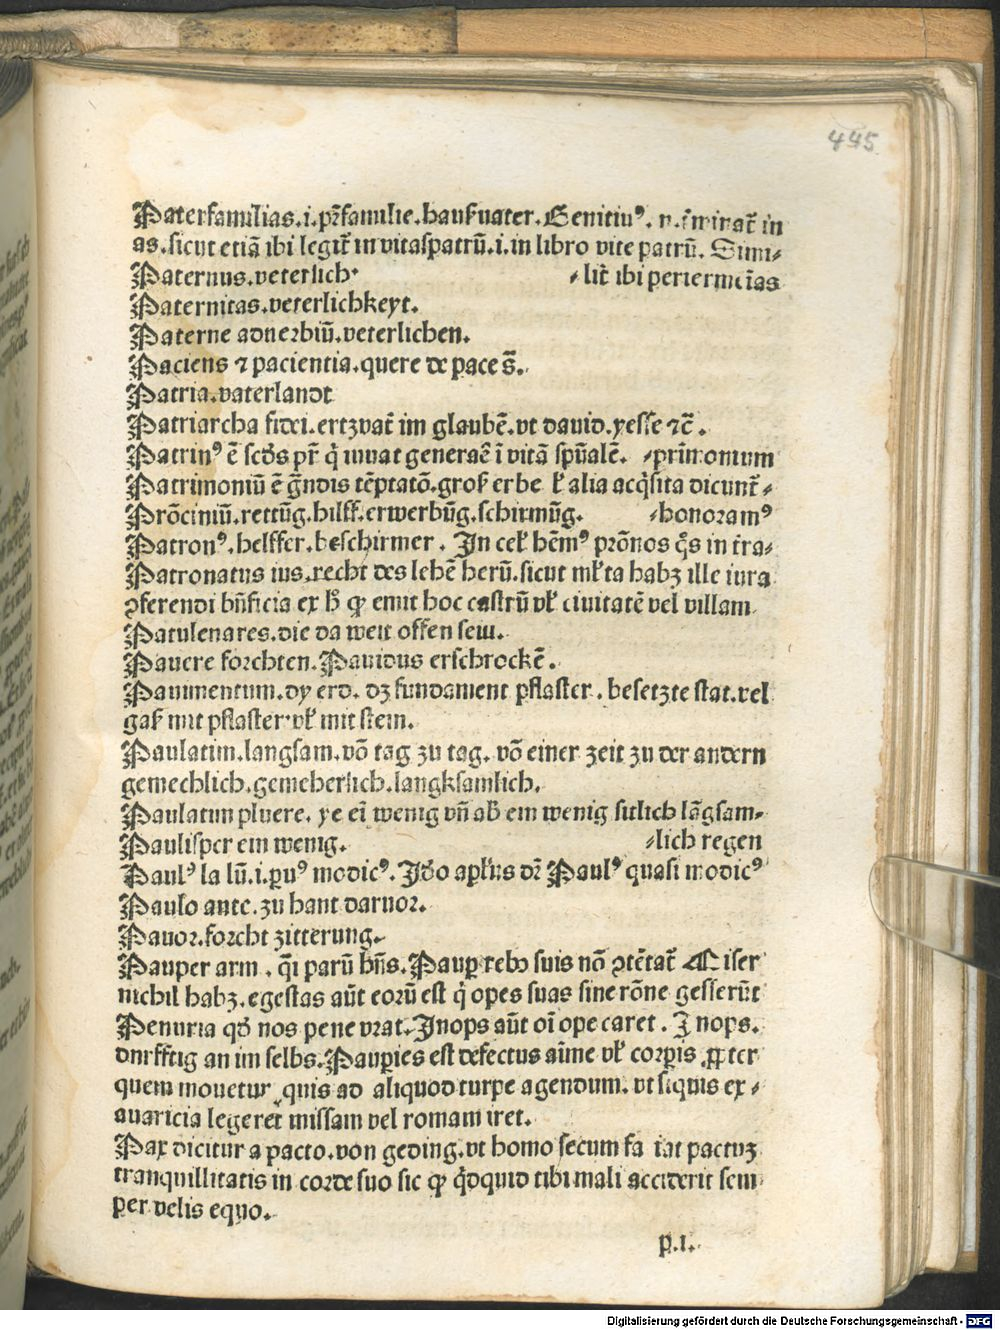 445
Paterfamilias.i.pr̄familie.hauſuater.Genitiuꝰ. in
as.ſicut etiā ibi legit̄ in vitaſpatrū.i.in libro vite patrū. Simi⸗
Paternus.veterlich· ⸗lit̄ ibi
Paternitas.veterlichkeyt.
Paterne aduerbiū.veterlichen.
Paciens ⁊ pacientia.quere de pace s̄.
Patria.vaterlandt
Patriarcha fidei.ertzvat̄ im glaubē.vt dauid.yeſſe ⁊c̄.
Patrinꝰ ē ſcd̄s pr̄ q̇ iuuat generaē ī vitā ſpūalē. ⸗prīmonium
Patrimoniū ē gn̄dis tēptatō.groſ erbe vl̄ alia acq̇ſita dicunt̄⸗
Prōciniū.rettūg.hilff.erwerbūg.ſchirmūg. ⸗honoramꝰ
Patronꝰ.helffer.beſchirmer. In cel̄ hēmꝰ prōnos q̄s in tr̄a⸗
Patronatus ius.recht des lehē herū.ſicut ml̄ta habꝫ ille iura
ꝓferendi bn̄ficia ex h̄ ꝙ emit hoc caſtrū vl̄ ciuitatē vel villam
Patulenares.die da weit offen ſein.
Pauere forchten.Pauidus erſchrockē.
Pauimentum.dy erd. dꝫ fundament pflaſter. beſetzte ſtat.vel
gaſ mit pflaſter·vl̄ mit ſtein.
Paulatim.langſam.vō tag zu tag. vō einer zeit zu der andern
gemechlich.gemeherlich.langkſamlich.
Paulatim pluere. ye eī wenig vn̄ ab ein wenig ſitlich lāgſam⸗
Pauliſper ein wenig. ⸗lich regen
Paulꝰ la lū.i.ꝑuꝰ modicꝰ. Id̄o apl̄us dr̄ Paulꝰ quaſi modicꝰ
Paulo ante.zu hant daruor.
Pauor.forcht zitterung.
Pauper arm . q̄i parū hn̄s.Pauꝑ rebꝰ ſuis nō ꝯtētat̄ Miſer
nichil habꝫ.egeſtas aūt eorū eſt q̇ opes ſuas ſine rōne geſſerūt
Penuria qd̄ nos pene vrat.Inops aūt oī ope caret. Inops.
durfftig an im ſelbs.Pauꝑies eſt defectus aīme vl̄ corꝑis ꝓpter
quem mouetur quis ad aliquod turpe agendum. vt ſiquis ex⸗
auaricia legeret miſſam vel romam iret.
Pax dicitur a pacto.von geding.vt homo ſecum fa iat pactuꝫ
tranquillitatis in corde ſuo ſic ꝙ q̇dquid tibi mali acciderit ſem
per velis equo.
p.i.
Digitalisierung gefördert durch die Deutsche Forschungsgemeinschaft - DFG